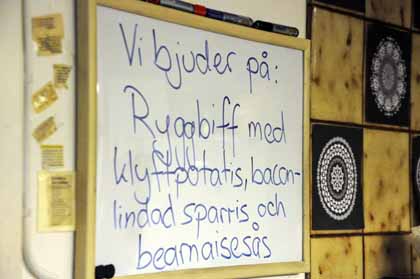 Vi bjuder på:
Ryggbiff med
klyftpotatis, bacon-
lindad sparris och
bearnaisesås